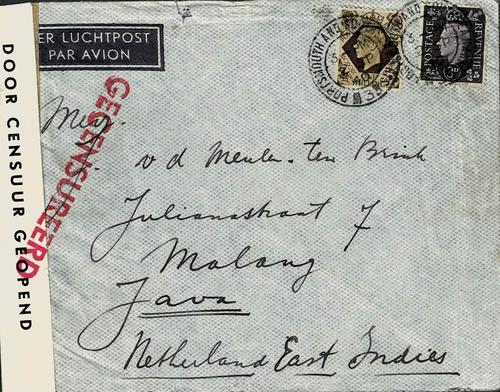 PER LUCHTPOST
PAR AVION
DOOR CENSUUR GEOPEND
GECENSUREERD
PORTSMOUTH AND
POSTAGE REVENUE
3D
Mej.
v d Meulen-ten Brink
Julianastraat 7
Malang
Java
Netherland East Indies